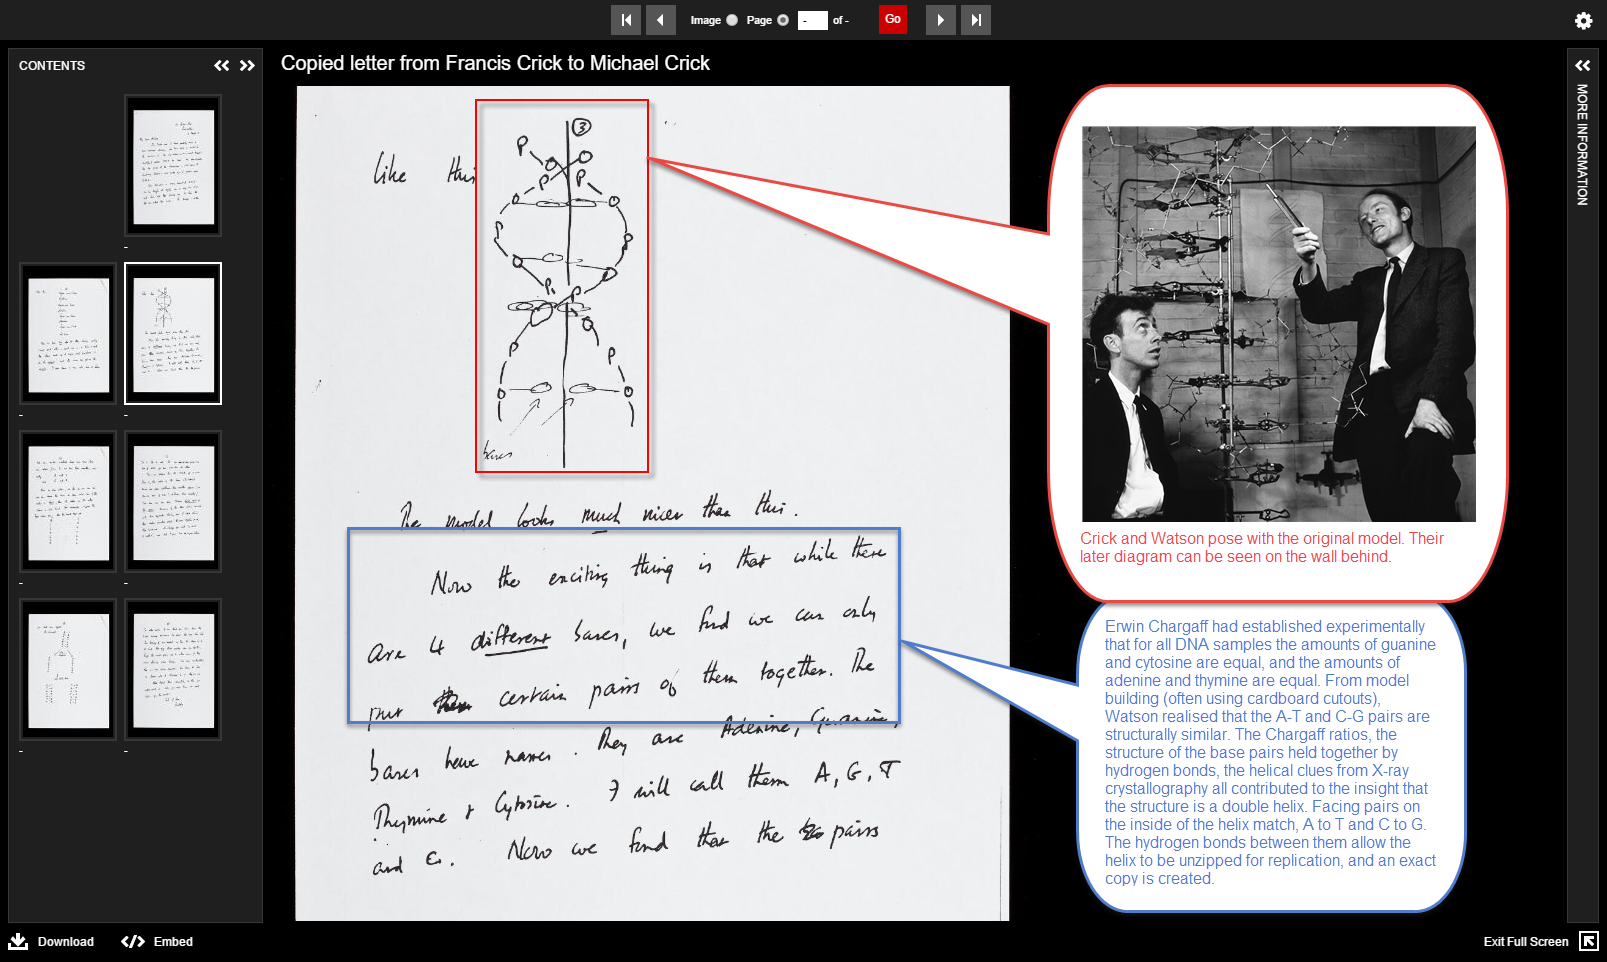 Image Page - of - Go
CONTENTS
Copied letter from Francis Crick to Michael Crick
MORE INFORMATION
3
like this
P
P P
P P
P P
P P
bases
The model looks much nicer than this.
Now the exciting thing is that while there
are 4 different bases, we find we can only
put certain pairs of them together. The
bases have names. They are Adenine, Guanine,
Thymine & Cytosine. I will call them A, G, T
and C. Now we find that the pairs
Crick and Watson pose with the original model. Their
later diagram can be seen on the wall behind.
Erwin Chargaff had established experimentally
that for all DNA samples the amounts of guanine
and cytosine are equal, and the amounts of
adenine and thymine are equal. From model
building (often using cardboard cutouts),
Watson realised that the A-T and C-G pairs are
structurally similar. The Chargaff ratios, the
structure of the base pairs held together by
hydrogen bonds, the helical clues from X-ray
crystallography all contributed to the insight that
the structure is a double helix. Facing pairs on
the inside of the helix match, A to T and C to G.
The hydrogen bonds between them allow the
helix to be unzipped for replication, and an exact
copy is created.
Download Embed
Exit Full Screen